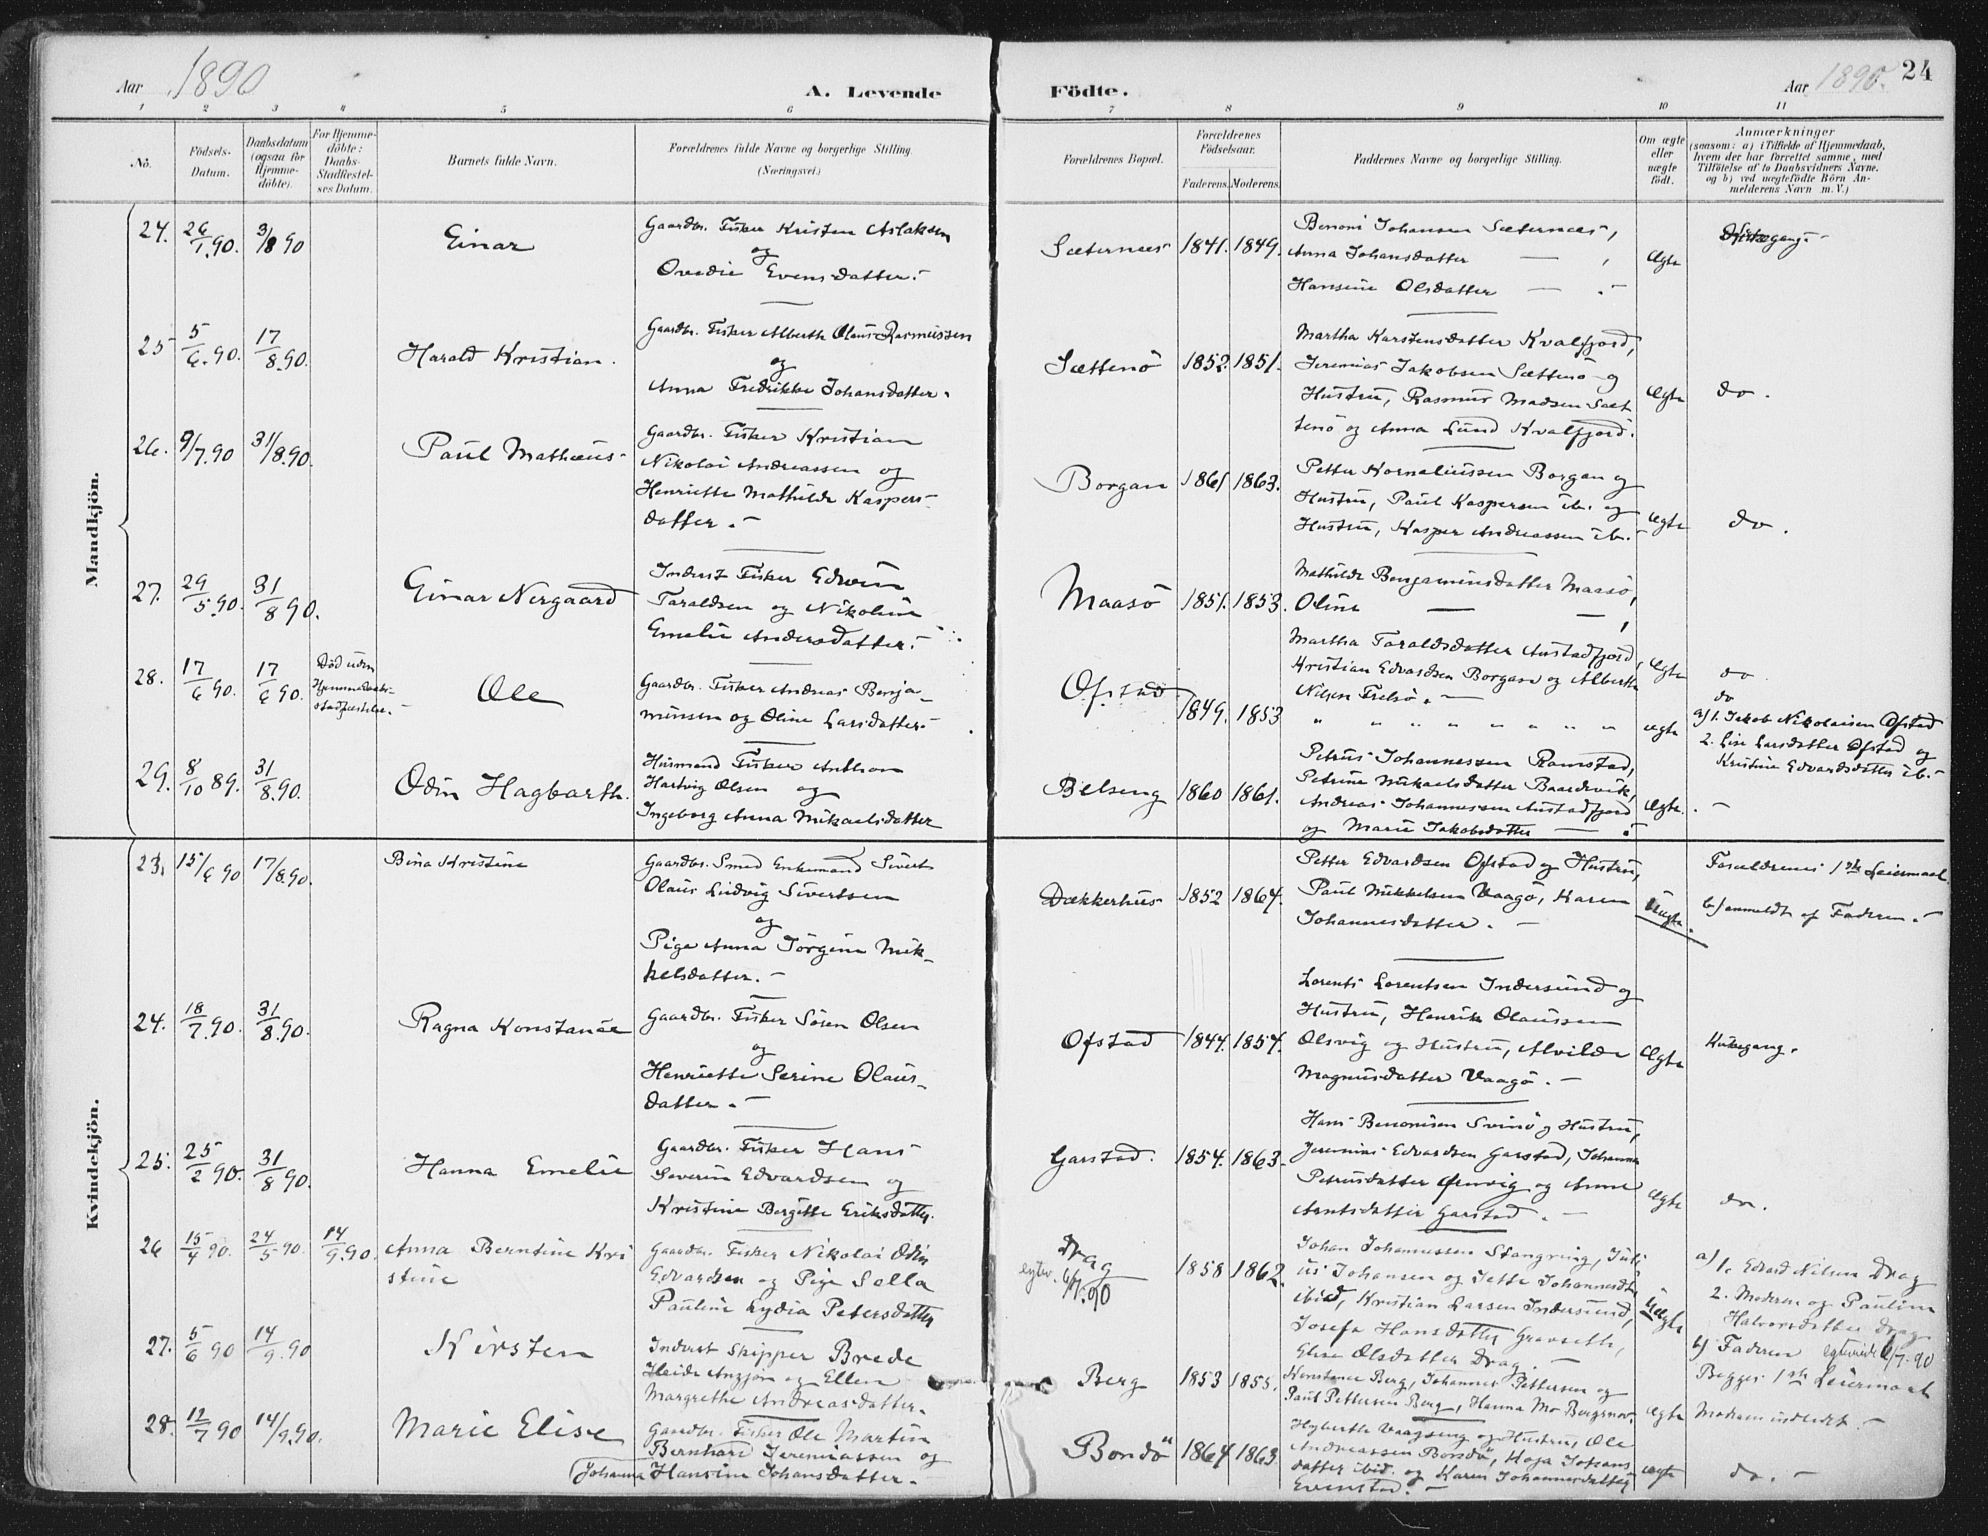 Aar 1890
A. Levende
Födte.
Aar 1890.
24
1 2 3 4 5 6 7 8 9 10 11
No.
Födsels-
Datum.
Daabsdatum
(ogsaa for
Hjemme-
döbte).
For Hjemme-
döbte:
Daabs-
Stadfæstel-
ses Datum.
Barnets fulde Navn.
Forældrenes fulde Navne og borgerlige Stilling
(Næringsvei)
Forældrenes Bopæl.
Forældrenes
Födselsaar.
Faderens. Moderens.
Faddernes Navne og borgerlige Stilling.
Om ægte
eller
uægte
födt.
Anmærkninger
(saasom: a) i Tilfælde af Hjemmedaab,
hvem der har forrettet samme, med
Tilföielse af to Daabsvidners Navne.
og b) ved uægtefödte Börn An-
melderens Navn m. V.)
Mandkjön.
24. 26/1.90. 3/8 90
Einar
Gaardbr. Fisker Kristen Aslaksen
og
Ovedie Evensdatter.
Sæternæs 1841. 1849.
Benoni Johansen Sæternæs,
Anna Johansdatter — ,
Hansine Olsdatter — .
Ægte
25 5/6.90. 17/8.90.
Harald Kristian.
Gaardbr. Fisker Alberth Olaus Rasmussen
og
Anna Fredrikke Johansdatter.
Sættenö 1852. 1851.
Martha Karstensdatter Kvalfjord,
Jeremias Jakobsen Sættenö og
Hustru, Rasmus Madsen Sæt
tenö og Anna Lund Kvalfjord.
Ægte do.
26. 9/7.90 31/8.90.
Paul Mathæus
Gaardbr. Fisker Kristian
Nikolai Andreassen og
Henriette Mathilde Kaspers-
datter.
Borgan 1861 1863.
Petter Korneliussen Borgan og
Hustru, Paul Kaspersen ib. og
Hustru, Kasper Andreassen ib.
Ægte do.
27. 29/5.90. 31/8 90.
Einar Nergaard
Inderst Fisker Edvin
Taraldsen og Nikoline
Emelie Andersdatter.
Maasö 1851. 1853.
Mathilde Benjaminsdatter Maasö,
Oline — — ,
Martha Taraldsdatter Austadfjord,
Kristian Edvardsen Borgan og Alberth
Nilsen Frelsö.
Ægte do
28. 17/6 90. 17/6 90.
Död uden
Hjemmedaabs-
stadfæstelse.
Ole
Gaardbr. Fisker Andreas Benja-
minsen og Oline Larsdatter.
Ofstad 1849. 1853
" " " " " " " "
ægte
do
a) 1. Jakob Nikolaisen Ofstad
2. Lise Larsdatter Ofstad og
Kristine Edvardsdatter ib.
29. 8/10 89. 31/8.90.
Odin Hagbarth.
Husmand Fisker Anthon
Hartvig Olsen og
Ingeborg Anna Mikaelsdatter
Belseng 1860 1861.
Petrus Johannessen Ramstad,
Petrine Mikaelsdatter Baardsvik,
Andreas Johannessen Austadfjord
og Marie Jakobsdatter —
Ægte.
Kvindekjön.
23. 15/6 90 17/8.90.
Bina Kristine
Gaardbr. Smed Enkemand Sivert
Olaus Ludvig Sivertsen
og
Pige Anna Jörgine Mik-
kelsdatter.
Dækkerhus 1852 1864.
Petter Edvardsen Ofstad og Hustru,
Paul Mikkelsen Vaagö, Karen
Johannesdatter.
Uægte.
Forældrenes 1ste Leiermaal.
b) anmeldt af Faderen.
24. 18/7.90. 31/8.90.
Ragna Konstance
Gaardbr. Fisker Sören Olsen
og
Henriette Serine Olaus-
datter.
Ofstad 1844. 1854.
Lorents Lorentsen Indersund og
Hustru, Henrik Olaussen
Olsvig og Hustru, Alvilde
Magnusdatter Vaagö.
Ægte
Kirkegang.
25. 25/2 90. 31/8 90.
Hanna Emelie
Gaardbr. Fisker Hans
Severin Edvardsen og
Kristine Bergitte Eriksdatter.
Garstad. 1854. 1863.
Hans Benonisen Svinö og Hustru,
Jeremias Edvardsen Garstad, Johanna
Petrusdatter Ørnvig og Anne
Arntsdatter Garstad.
Ægte do.
26 15/4 90. 24/5 90. 14/9.90.
Anna Berntine Kri
stine
Gaardbr. Fisker Nikolai Odin
Edvardsen og Pige Sella
Pauline Lydia Petersdatter
Drag
egtev. 6/7.90
1858 1862.
Johan Johannessen Stangring, Juli
us Johansen og Jette Johannesdtr
ibid, Kristian Larsen Indersund,
Josefa Hansdatter Graaseth,
Elise Olsdatter Drag.
Uægte
a) 1. Edvard Nilsen Drag
2. Moderen og Pauline
Halvorsdatter Drag
b) Faderen egteviede 6/7.90
Begges 1ste Leiermaal
27. 5/6 90 14/9.90
Kirsten
Inderst Skipper Brede
Heide Anzjön og Ellen
Margrethe Andreasdatter.
Berg 1853 1855.
Konstance Berg, Johannes Pettersen og
Paul Pettersen Berg, Hanna Mo Bergsnov.
Ægte
Moderen indledt.
28. 12/7 90 14/9.90.
Marie Elise
Gaardbr. Fisker Ole Martin
Bernhard Jeremiassen og
(Johanna Hansine Johansdatter.
Bondö 1864 1863
Hyberth Vaagseng og Hustru, Ole
Andreassen Bondö, Haja Johans
datter ibid. og Karen Johannesdatter
Evenstad.
ægte do.